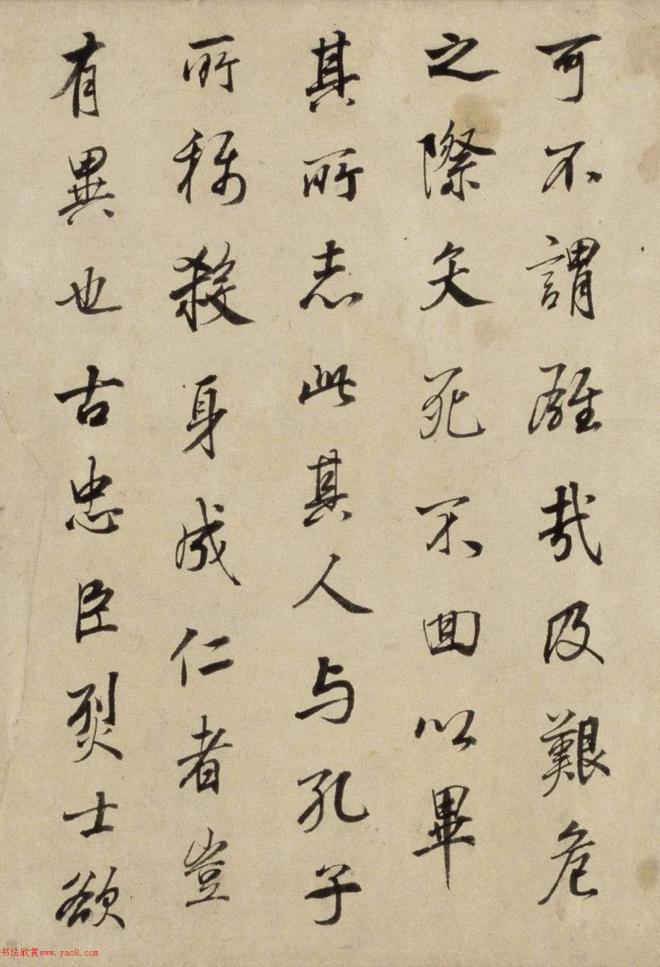 可不謂難哉及艱危
之際矢死不回以畢
其所志此其人与孔子
所称殺身成仁者豈
有異也古忠臣烈士欲
书法欣赏www.yac8.com